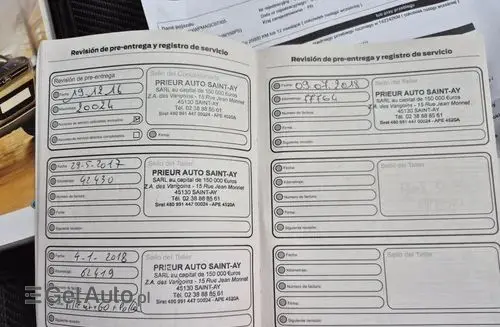 Revisión de pre-entrega y registro de servicio
Revisión de pre-entrega
Fecha: 19.12.16
20024
Firma:
Sello del Concesionario
PRIEUR AUTO SAINT-AY
SARL au capital de 150 000 Euros
Z.A. des Varigoins - 15 Rue Jean Monnet
45130 SAINT-AY
Tél. 02 38 88 85 61
Siret 480 991 447 00024 - APE 4520A
Fecha: 29-5-2017
Kilometraje: 42430
Número de factura:
Firma:
Siguiente revisión:
Sello del Taller
PRIEUR AUTO SAINT-AY
SARL au capital de 150 000 Euros
Z.A. des Varigoins - 15 Rue Jean Monnet
45130 SAINT-AY
Tél. 02 38 88 85 61
Siret 480 991 447 00024 - APE 4520A
Fecha: 4-1-2018
Kilometraje: 62419
Número de factura:
Firma:
Sello del Taller
PRIEUR AUTO SAINT-AY
SARL au capital de 150 000 Euros
Z.A. des Varigoins - 15 Rue Jean Monnet
45130 SAINT-AY
Tél. 02 38 88 85 61
Siret 480 991 447 00024 - APE 4520A
Revisión de pre-entrega y registro de servicio
Fecha: 09.07.2018
Kilometraje:
Número de factura:
Firma:
Siguiente revisión:
Sello del Taller
PRIEUR AUTO SAINT-AY
SARL au capital de 150 000 Euros
Z.A. des Varigoins - 15 Rue Jean Monnet
45130 SAINT-AY
Tél. 02 38 88 85 61
Siret 480 991 447 00024 - APE 4520A
Fecha:
Kilometraje:
Número de factura:
Firma:
Siguiente revisión:
Sello del Taller
Fecha:
Kilometraje:
Número de factura:
Firma:
Siguiente revisión:
Sello del Taller
GetAuto.pl